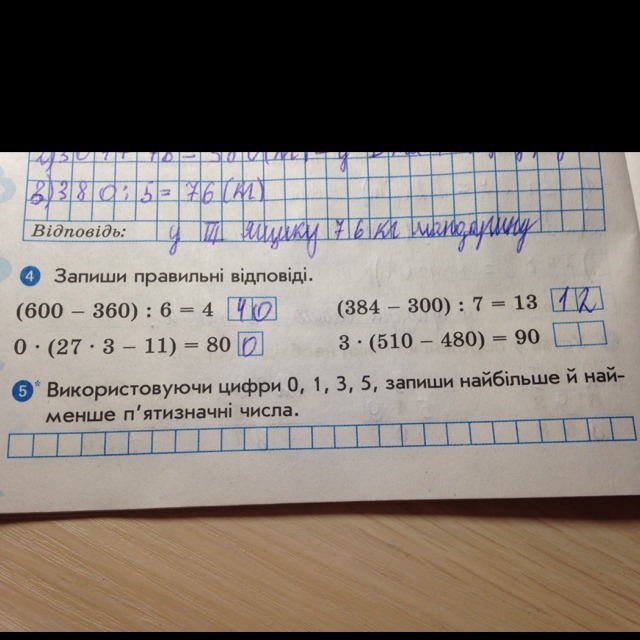 3) 380 : 5 = 76 (кг)
Відповідь: у III ящику 76 кг мандарину
4 Запиши правильні відповіді.
(600 – 360) : 6 = 4 40 (384 – 300) : 7 = 13 12
0 · (27 · 3 – 11) = 80 0 3 · (510 – 480) = 90
5* Використовуючи цифри 0, 1, 3, 5, запиши найбільше й най-
менше п'ятизначні числа.